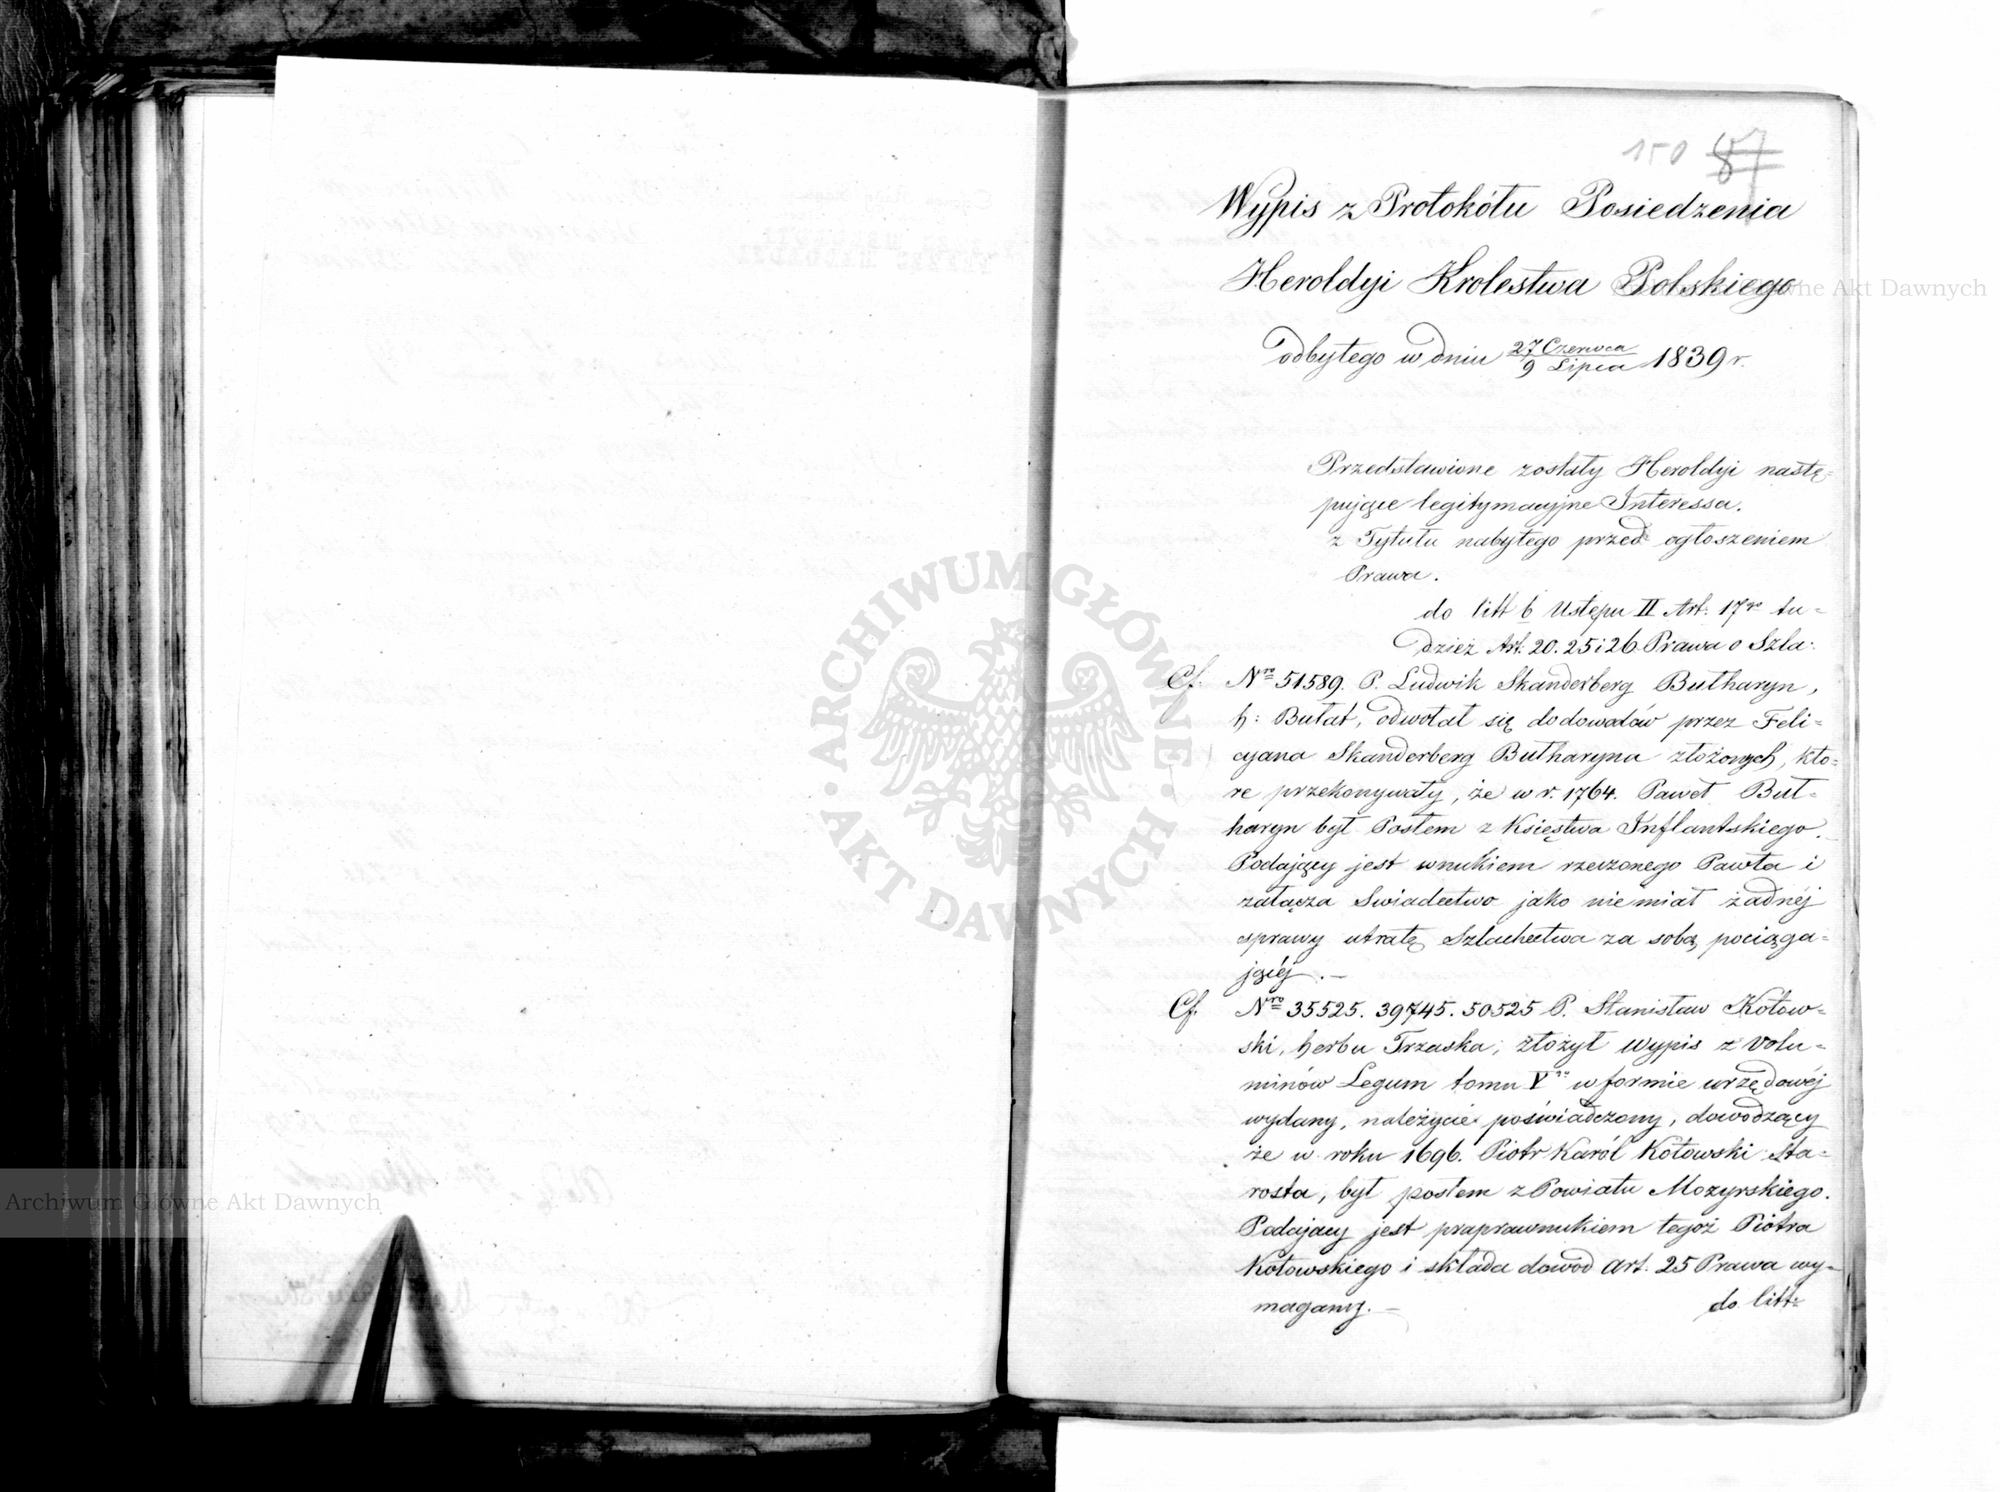 150 87
Wypis z Protokółu Posiedzenia
Heroldyi Krolestwa Polskiego
odbytego w dniu 27 Czerwca / 9 Lipca 1839 r.
Przedstawione zostały Heroldyi nastę=
pujące legitymacyjne Interessa.
z Tytułu nabytego przed ogłoszeniem
Prawa.
do litt b Ustępu II Art. 17go tu=
dzież Art. 20. 25 i 26 Prawa o Szla:
Cf. Nro 51589. P. Ludwik Skanderberg Butharyn,
h: Bułat, odwołał się do dowodów przez Feli=
cyana Skanderberg Butharyna złożonych, któ=
re przekonywały, że w r. 1764. Paweł But=
haryn był Posłem z Księstwa Inflantskiego.
Podający jest wnukiem rzeczonego Pawła i
załącza Swiadectwo jako nie miał żadnéj
sprawy utratę Szlachectwa za sobą pociąga=
jącéj.—
Cf. Nro 35525. 39745. 50525 P. Stanisław Kotow=
ski, herbu Trzaska, złożył wypis z Volu=
minów Legum tomu Vgo w formie urzędowéj
wydany, należycie poświadczony, dowodzący
że w roku 1696. Piotr Karól Kotowski Sta=
rosta, był posłem z Powiatu Mozyrskiego.
Podający jest praprawnukiem tegoż Piotra
Kotowskiego i składa dowod Art. 25 Prawa wy=
magany.—
do litt:
ARCHIWUM GŁÓWNE
AKT DAWNYCH
Archiwum Główne Akt Dawnych
Główne Akt Dawnych